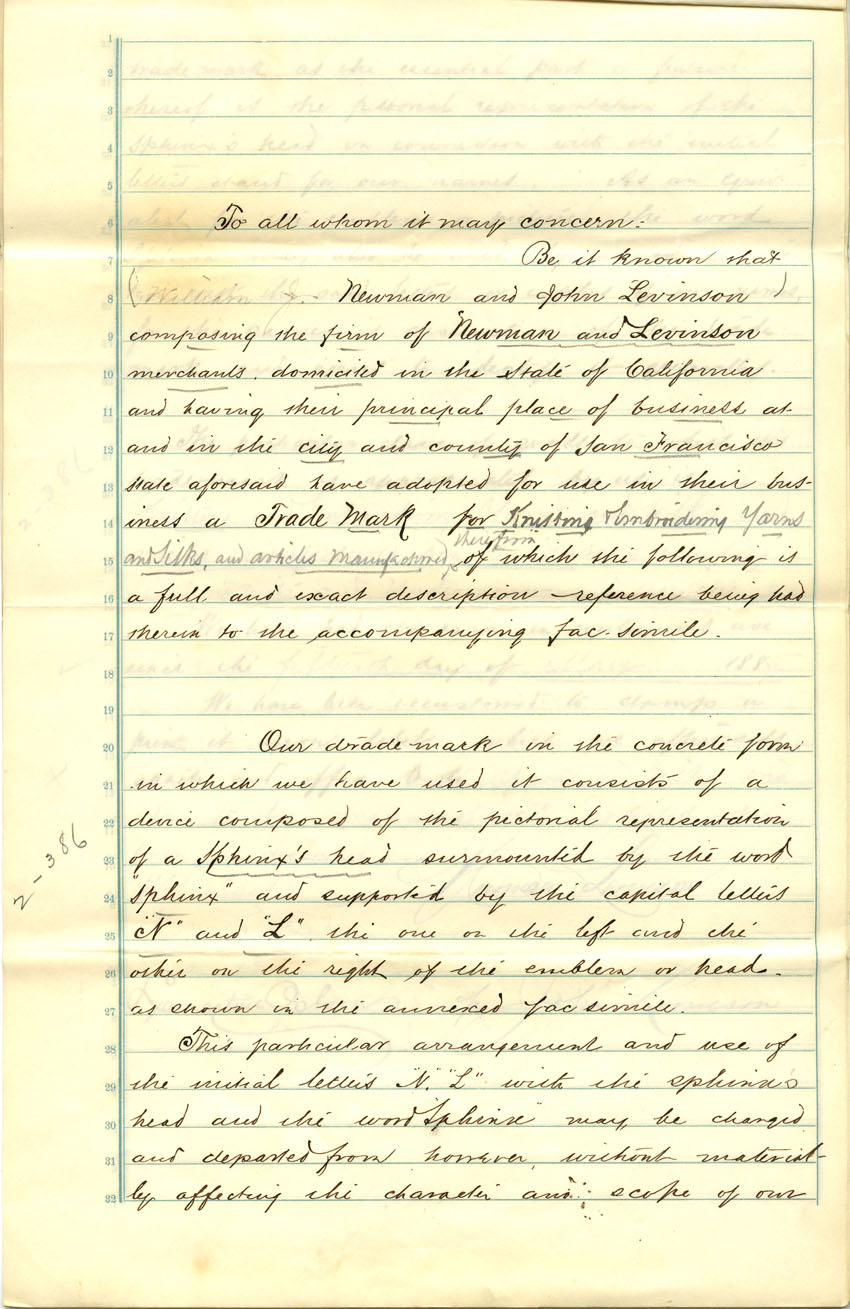 To all whom it may concern:
Be it known that
(William J. Newman and John Levinson)
composing the firm of "Newman and Levinson
merchants. domiciled in the State of California
and having their principal place of business at
and in the city and county of San Francisco
state aforesaid have adopted for use in their bus-
iness a Trade Mark for Knitting & Embroidering Yarns
and Silks, and articles manufactured therefrom, of which the following is
a full and exact description - reference being had
therein to the accompanying fac-simile.
Our trade-mark in the concrete form
in which we have used it consists of a
device composed of the pictorial representation
of a Sphinx's head surmounted by the word
"Sphinx" and supported by the capital letters
"N" and "L". the one on the left and the
other on the right of the emblem or head.
as shown in the annexed fac simile.
This particular arrangement and use of
the initial letters "N." "L" with the sphinx's
head and the word "Sphinx" may be changed
and departed from however, without material-
ly affecting the character and scope of our
2-386